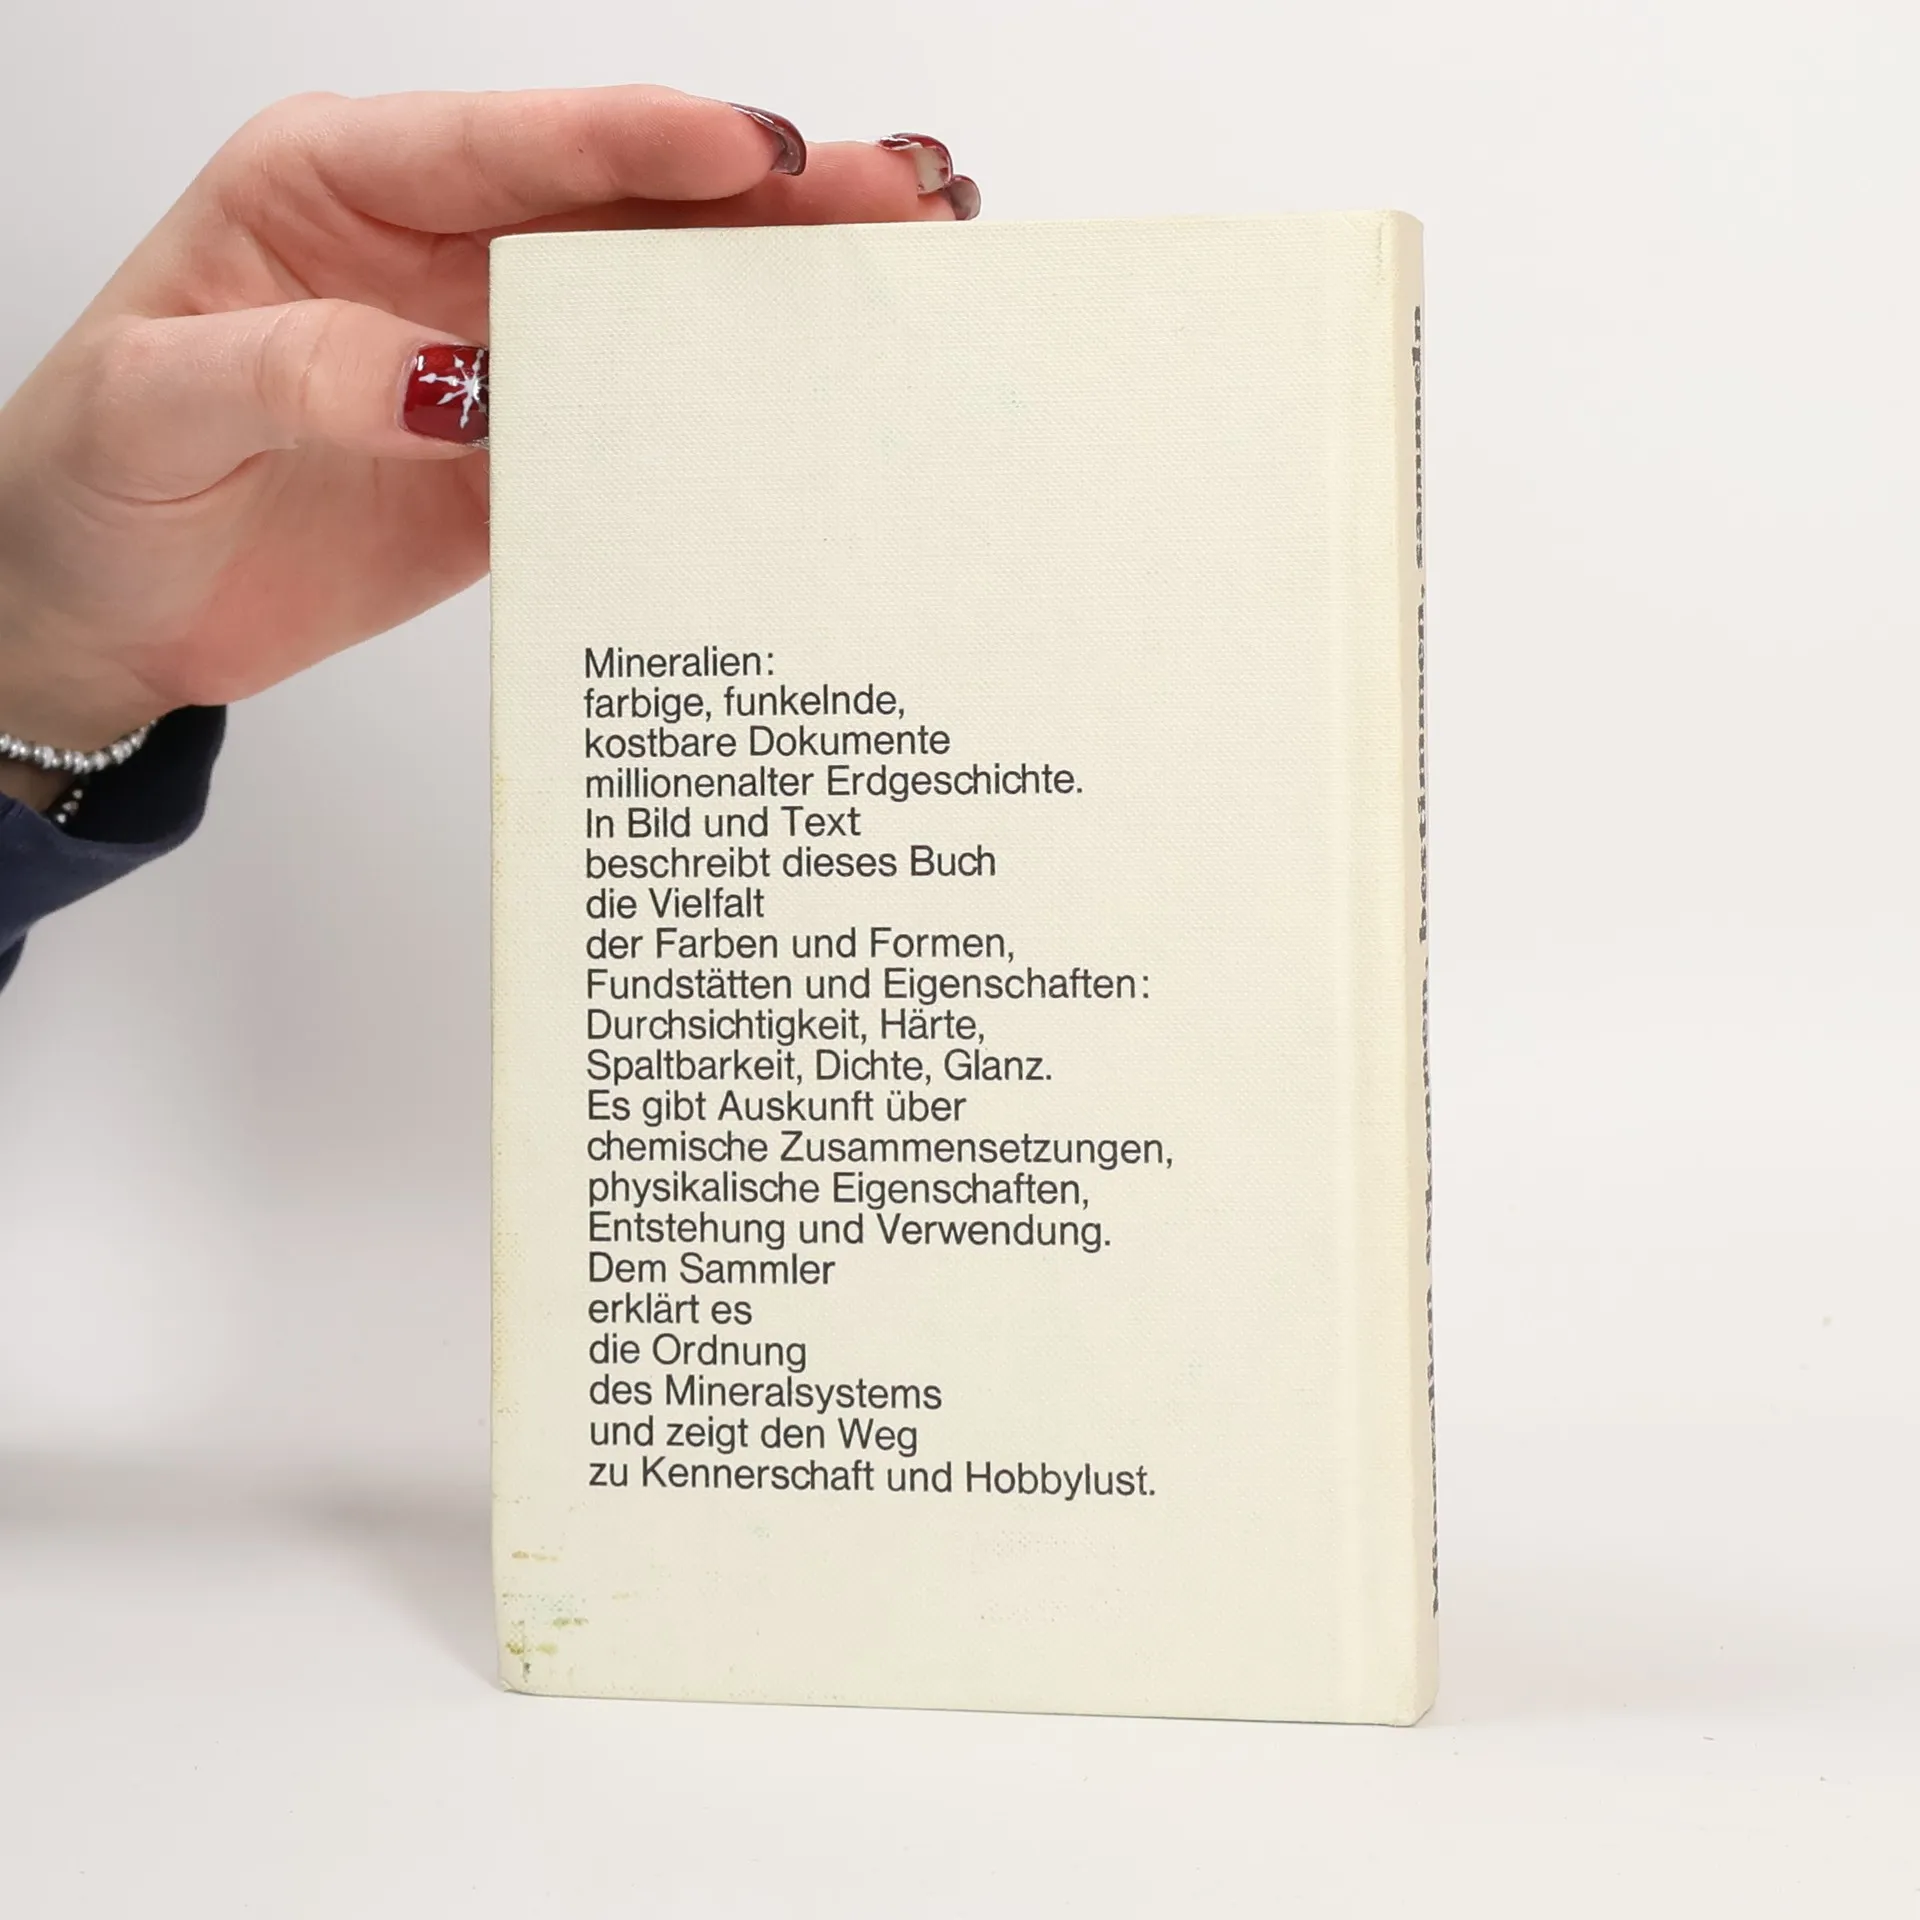 Mineralien:
farbige, funkelnde,
kostbare Dokumente
millionenalter Erdgeschichte.
In Bild und Text
beschreibt dieses Buch
die Vielfalt
der Farben und Formen,
Fundstätten und Eigenschaften:
Durchsichtigkeit, Härte,
Spaltbarkeit, Dichte, Glanz.
Es gibt Auskunft über
chemische Zusammensetzungen,
physikalische Eigenschaften,
Entstehung und Verwendung.
Dem Sammler
erklärt es
die Ordnung
des Mineralsystems
und zeigt den Weg
zu Kennerschaft und Hobbylust.
Mineralien erkennen, bestimmen, sammeln